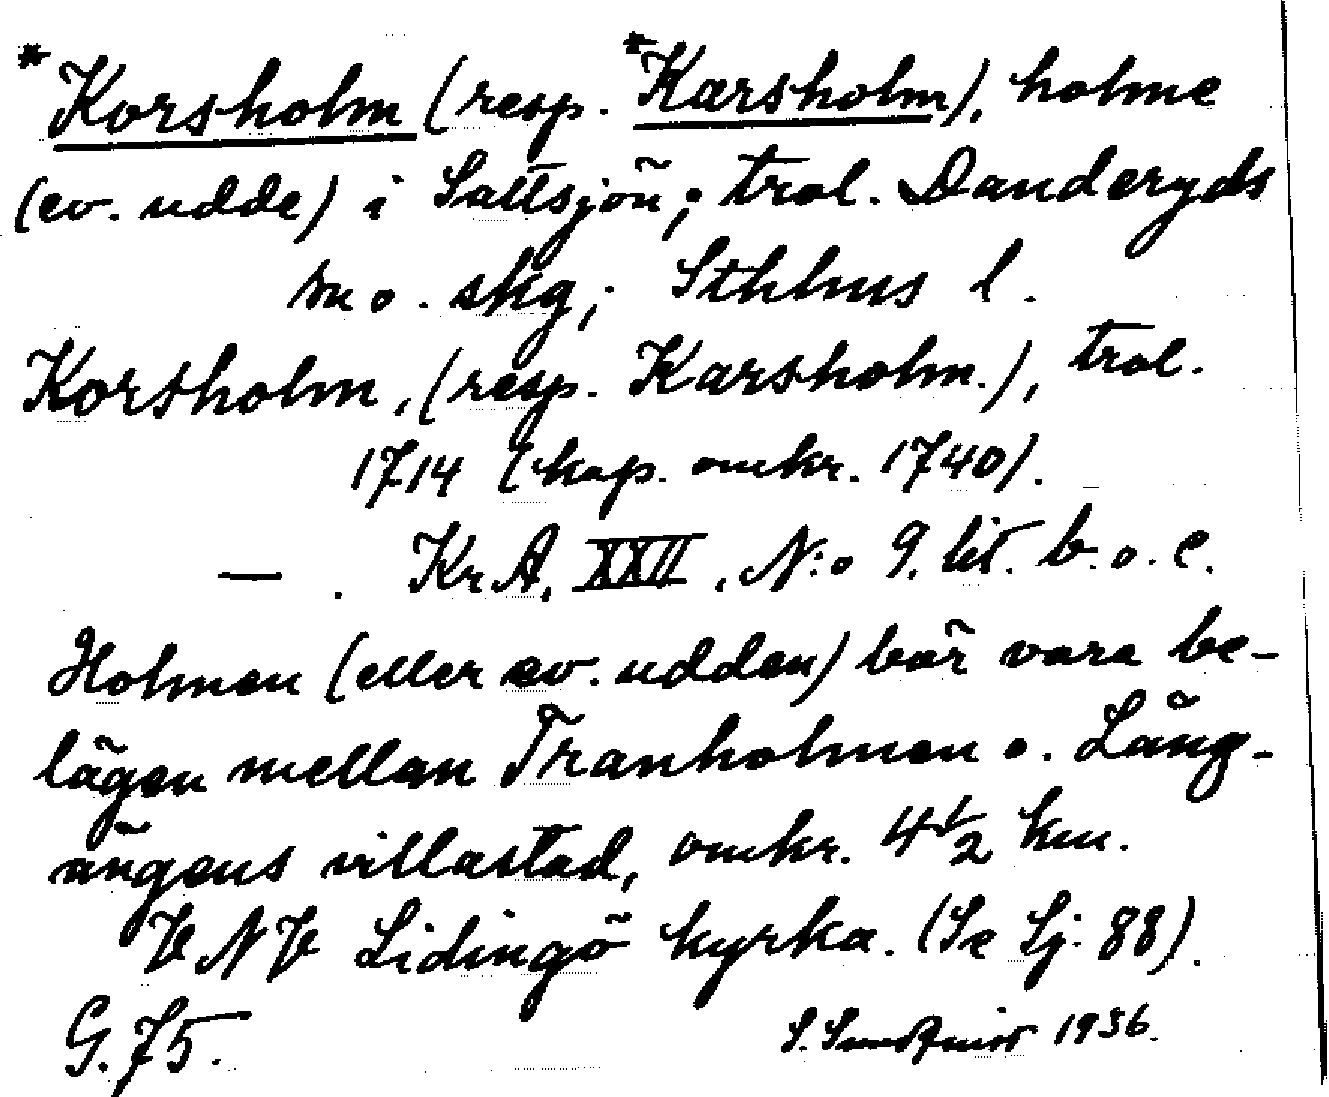 *Korsholm (resp. *Karsholm), holme
(ev. udde) i Saltsjön; trol. Danderyds
sn o. skg; Sthlms l.
Korsholm, (resp. Karsholm.), trol.
1714 (kop. omkr. 1740).
— . KrA, XXII, N:o 9. lit. b. o. c.
Holmen (eller ev. udden) bör vara be-
lägen mellan Tranholmen o. Lång-
ängens villastad, omkr. 4½ km.
VNV Lidingö kyrka. (Se Sj. 88).
G. 75. S. Sundqvist 1936.